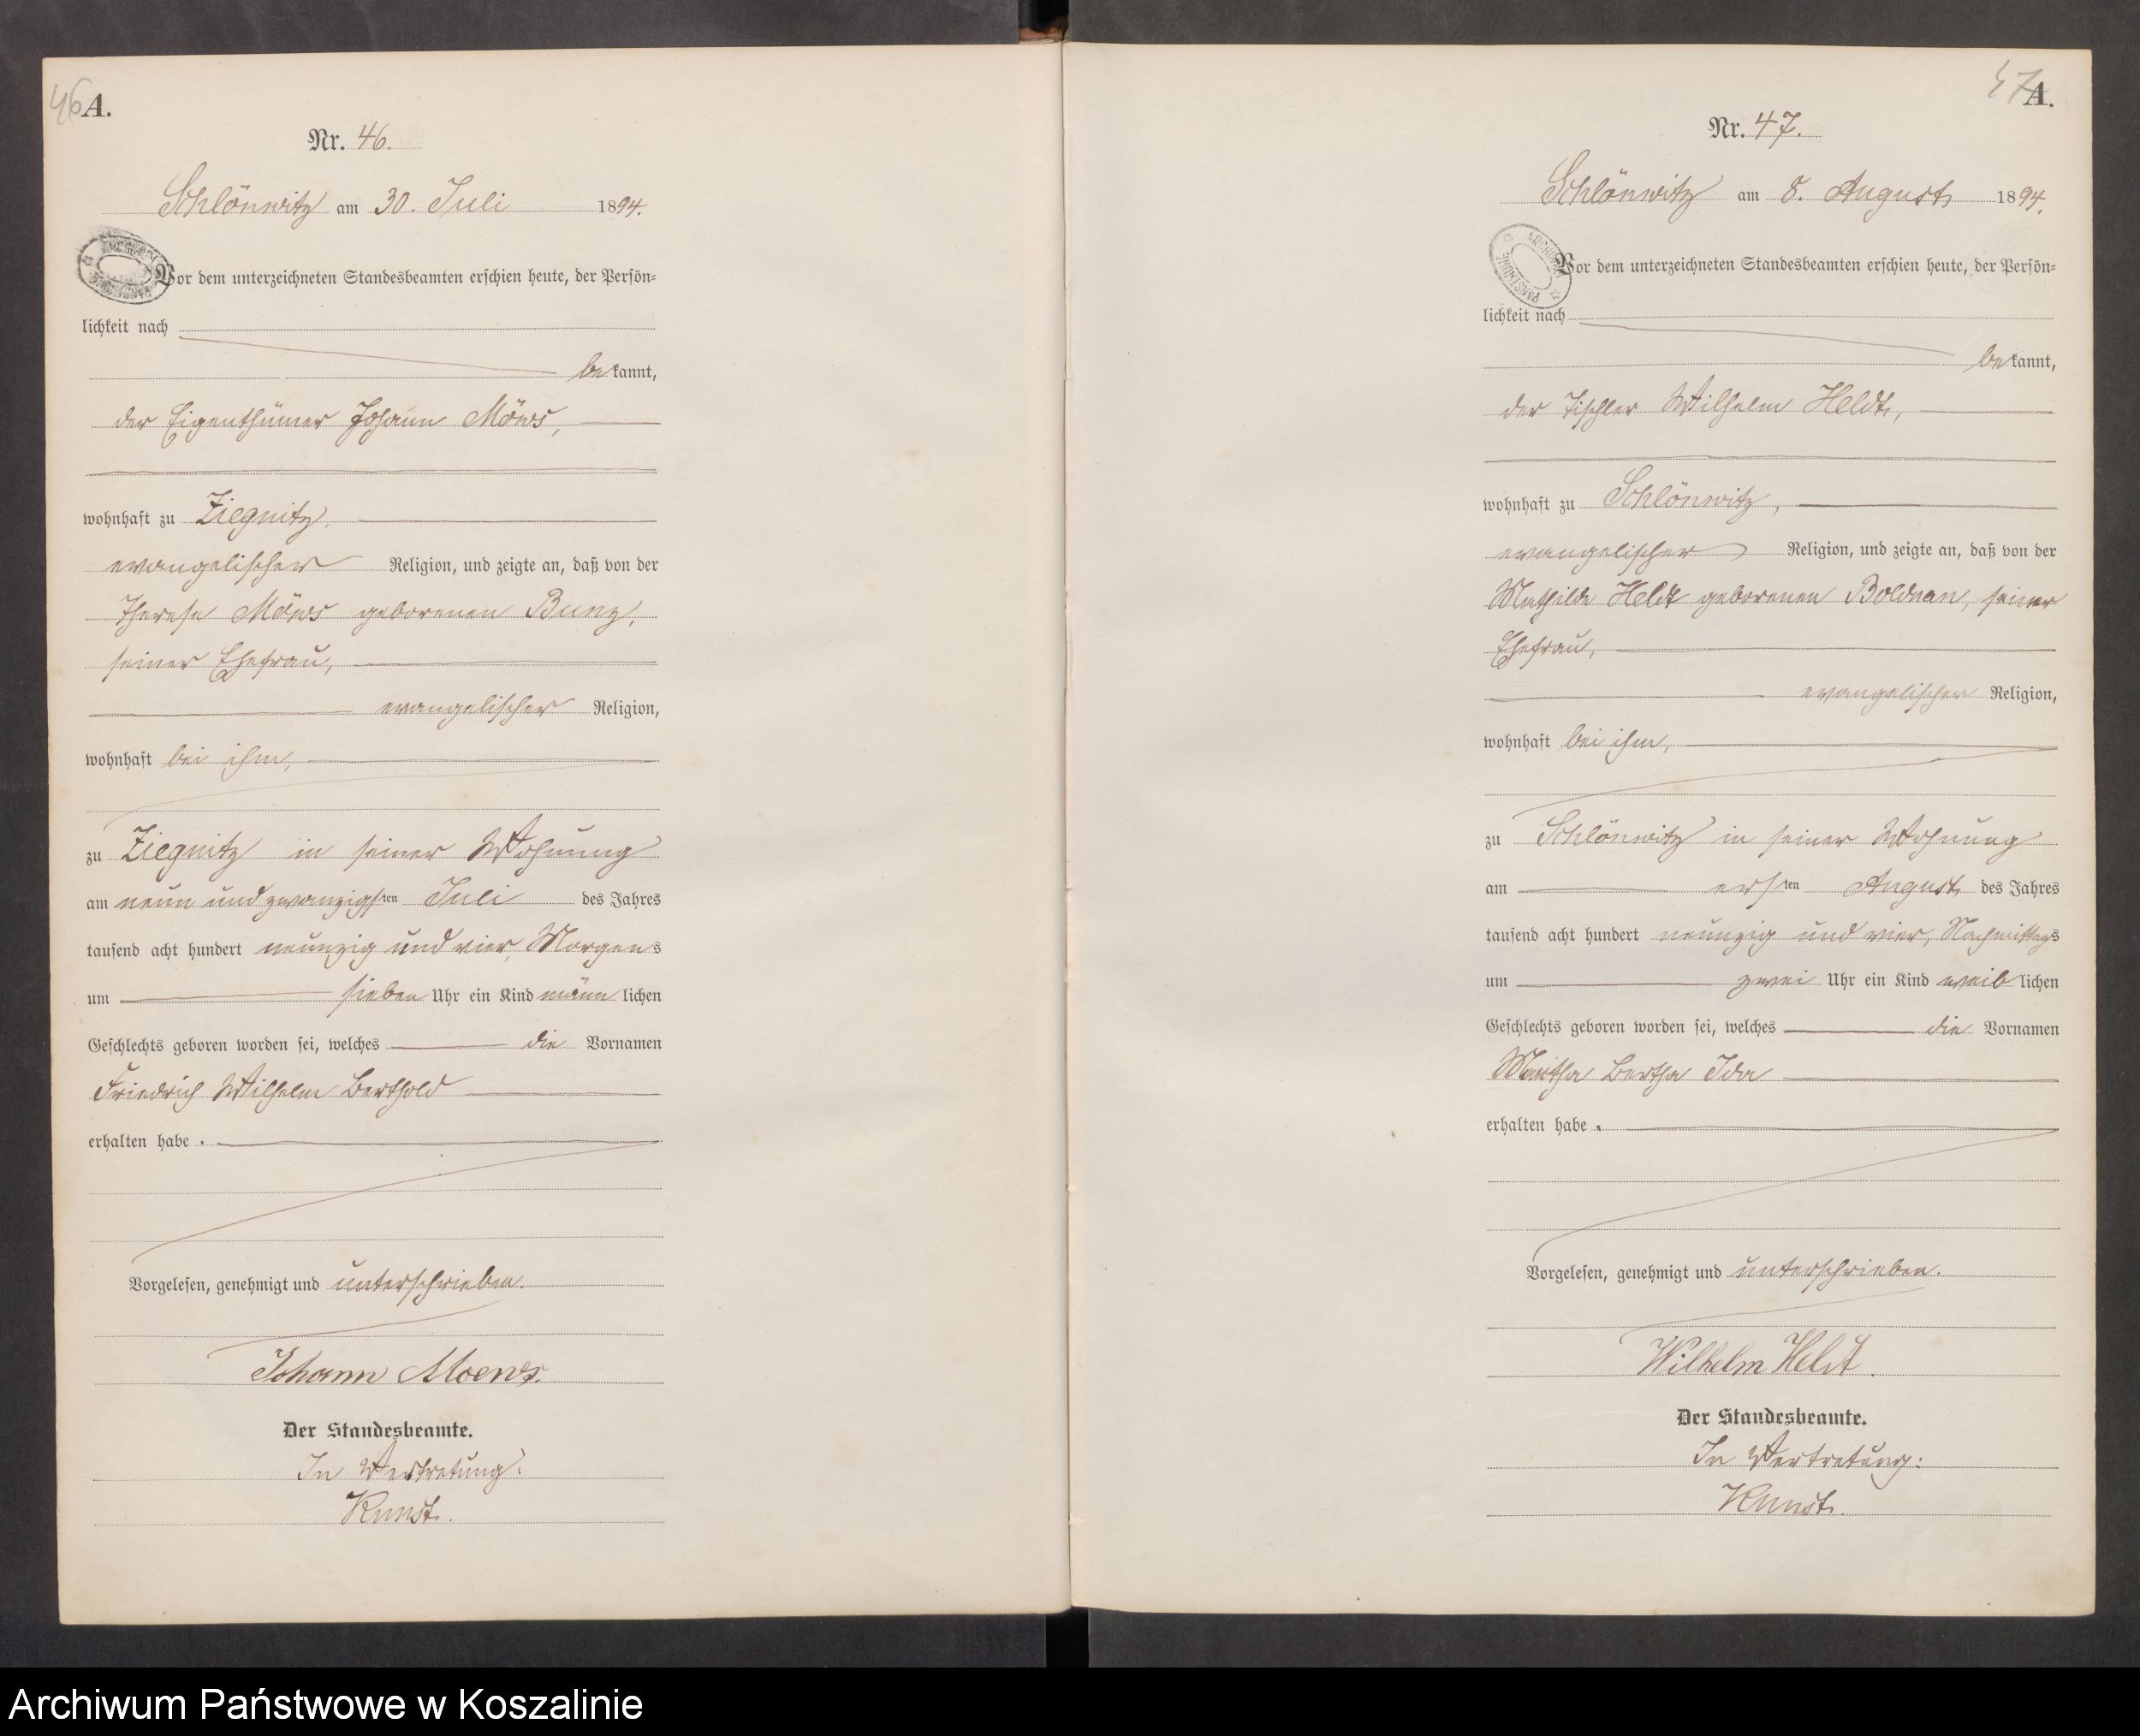 46
A.
Nr. 46.
Schlönwitz am 30. Juli 1894.
Vor dem unterzeichneten Standesbeamten erschien heute, der Persön-
lichkeit nach
bekannt,
der Eigenthümer Johann Möws,
wohnhaft zu Ziegnitz,
evangelischer Religion, und zeigte an, daß von der
Therese Möws geborenen Bunz,
seiner Ehefrau,
evangelischer Religion,
wohnhaft bei ihm,
zu Ziegnitz in seiner Wohnung
am neun und zwanzigsten Juli des Jahres
tausend acht hundert neunzig und vier, Morgens
um sieben Uhr ein Kind männlichen
Geschlechts geboren worden sei, welches die Vornamen
Friedrich Wilhelm Berthold
erhalten habe.
Vorgelesen, genehmigt und unterschrieben.
Johann Moews.
Der Standesbeamte.
In Vertretung:
Kunst.
47
A.
Nr. 47.
Schlönwitz am 8. August 1894.
Vor dem unterzeichneten Standesbeamten erschien heute, der Persön-
lichkeit nach
bekannt,
der Tischler Wilhelm Heldt,
wohnhaft zu Schlönwitz,
evangelischer Religion, und zeigte an, daß von der
Mathilde Heldt geborenen Bolduan, seiner
Ehefrau,
evangelischer Religion,
wohnhaft bei ihm,
zu Schlönwitz in seiner Wohnung
am ersten August des Jahres
tausend acht hundert neunzig und vier, Nachmittags
um zwei Uhr ein Kind weiblichen
Geschlechts geboren worden sei, welches die Vornamen
Martha Bertha Ida
erhalten habe.
Vorgelesen, genehmigt und unterschrieben.
Wilhelm Heldt.
Der Standesbeamte.
In Vertretung:
Kunst.
Archiwum Państwowe w Koszalinie